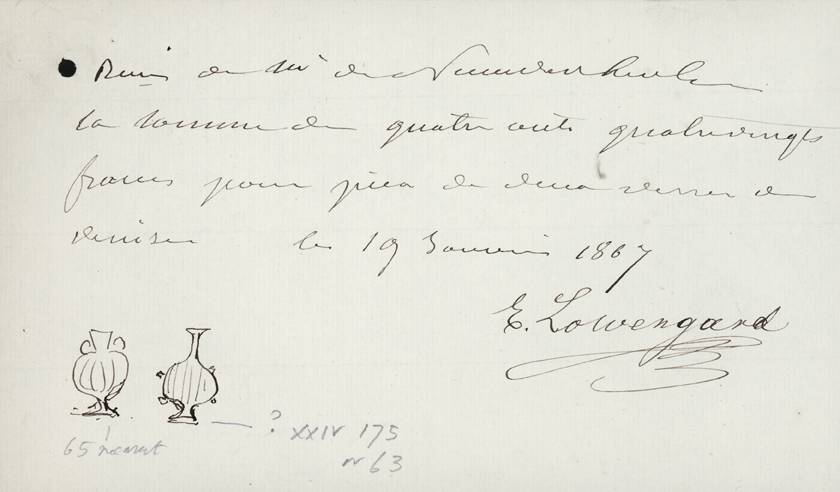 Reçu de Mr de Nieuwerkerke
la somme de quatre cents quatrevingts
francs pour prix de deux verres de
venise le 19 Janvier 1867
E. Lowengard
65
? XXIV 175
nr 63